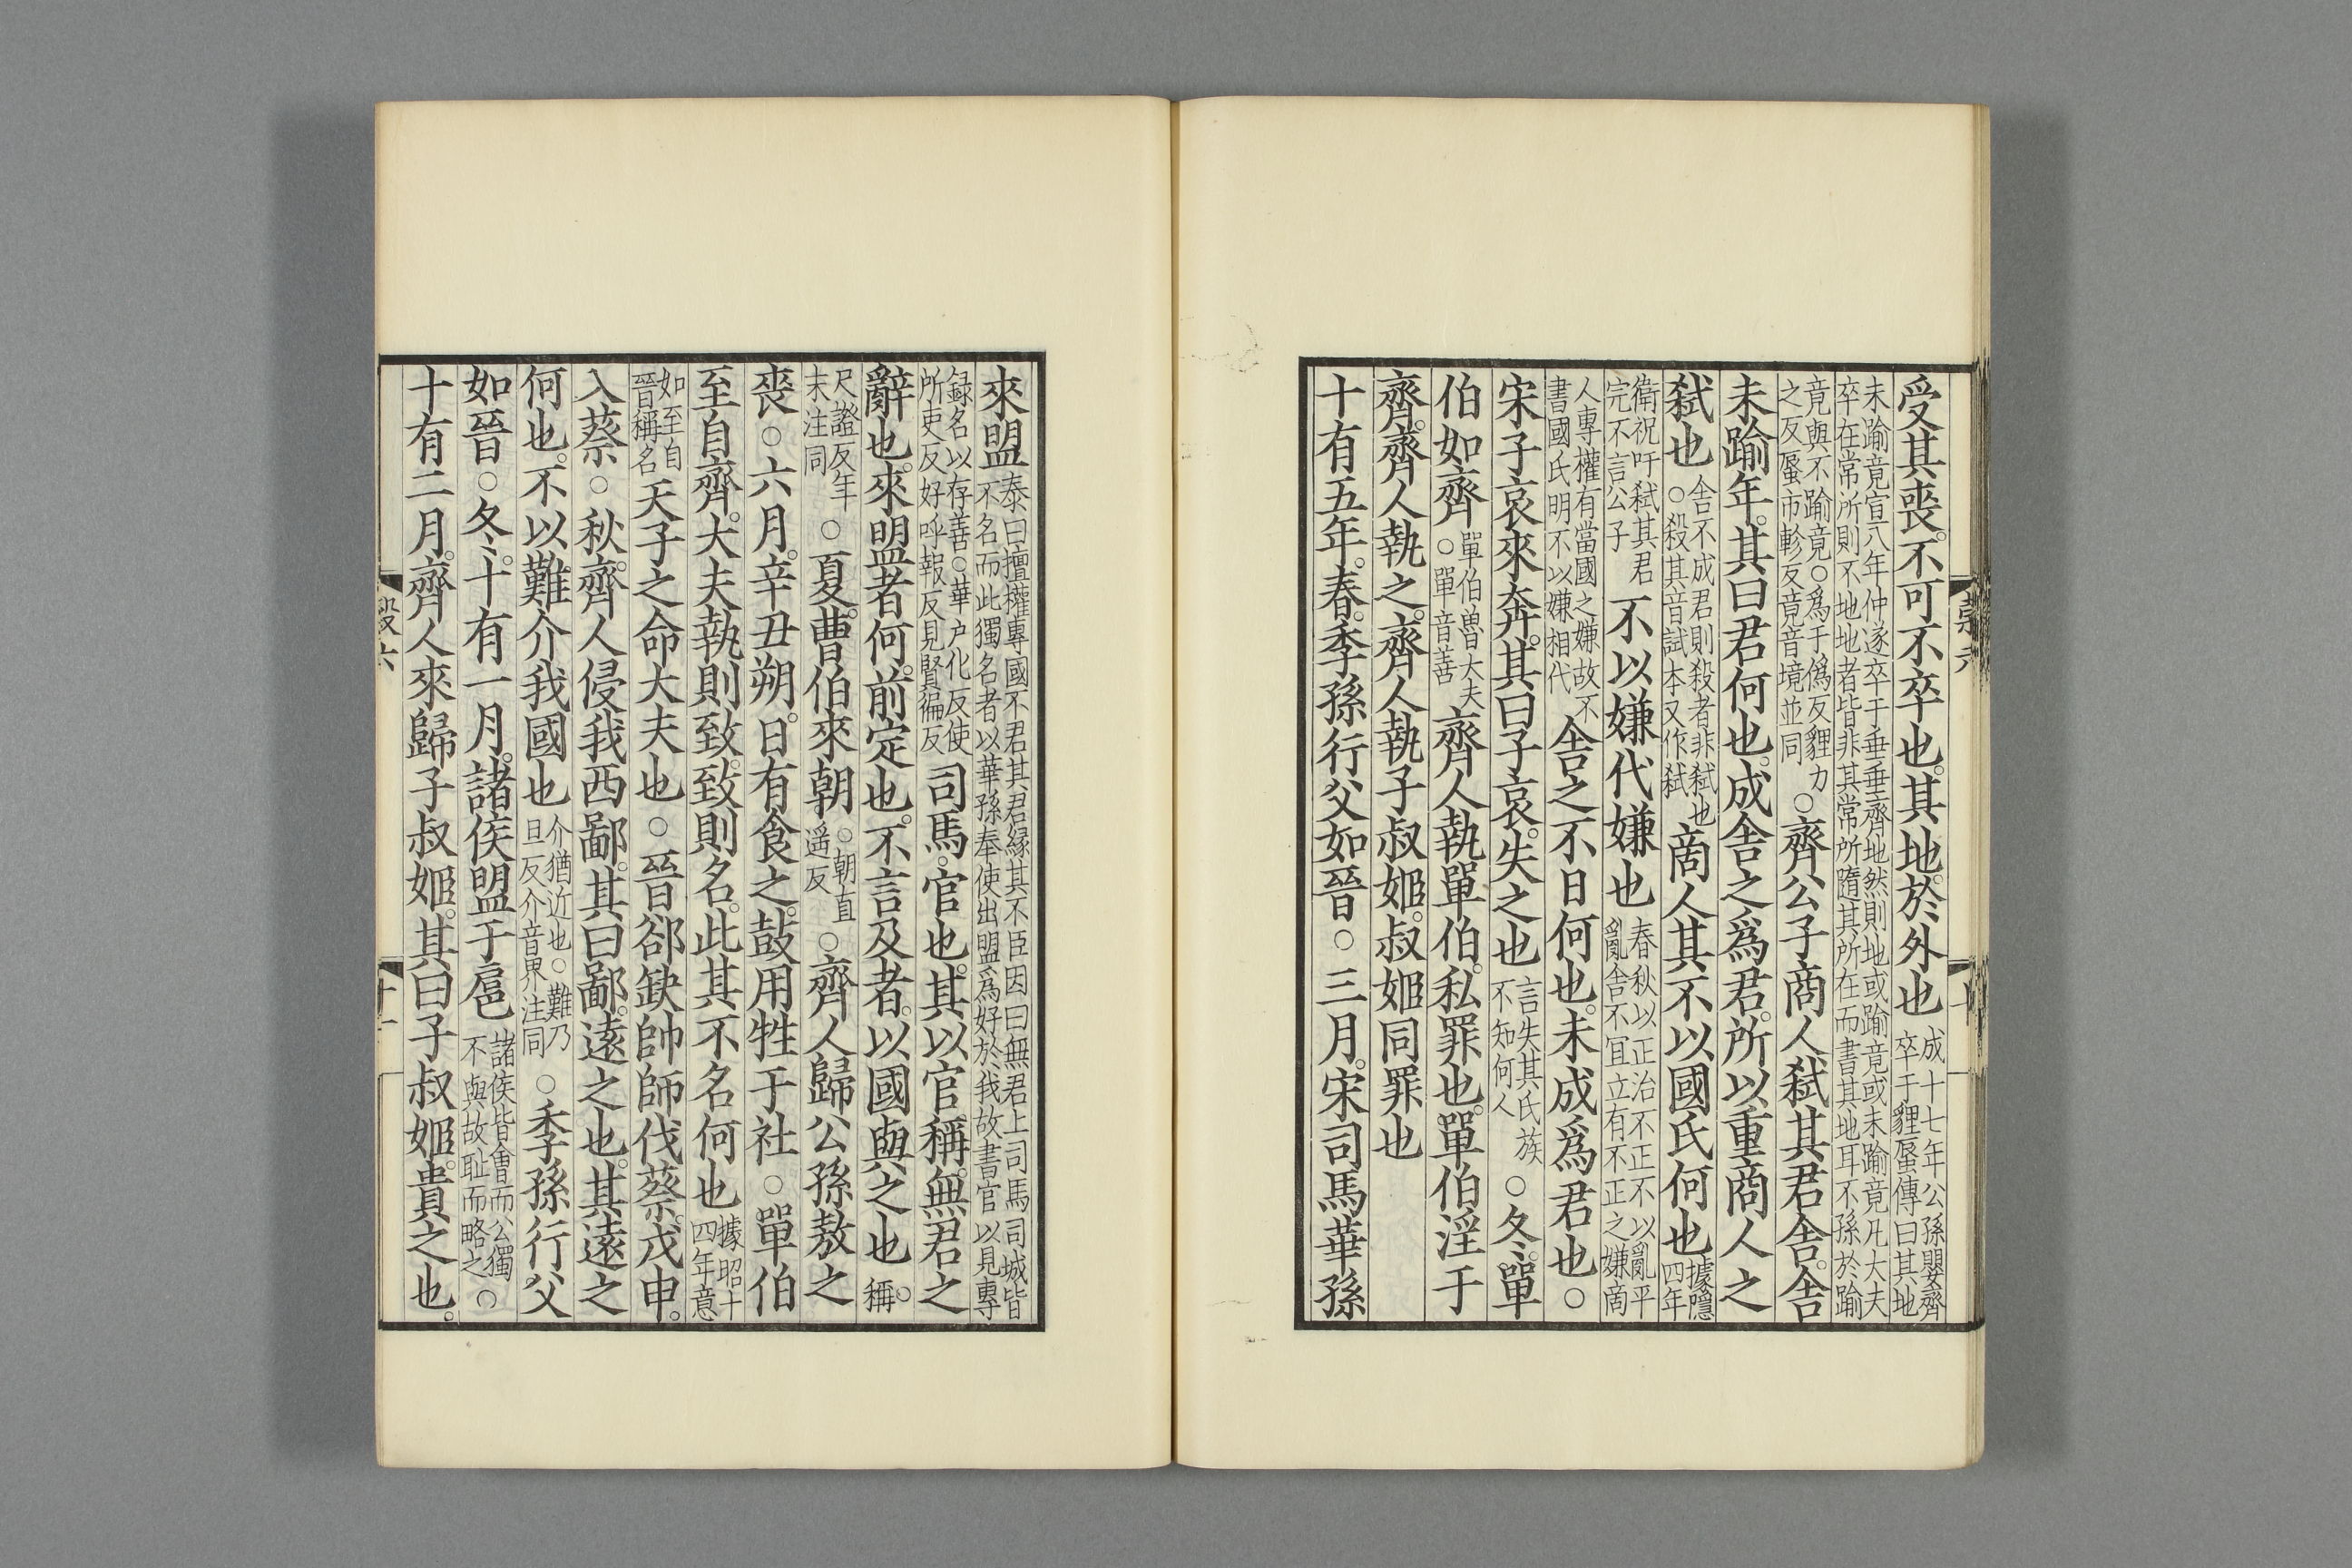 受其喪。不可不卒也。其地。於外也成十七年公孫嬰齊卒于貍蜃傳曰其地
未踰竟宣八年仲遂卒于垂垂齊地然則地或踰竟或未踰竟凡大夫卒在常所則不地地者皆非其常所隨其所在而書其地耳不孫於踰
竟與不踰竟○爲于僞反貍力之反蜃市軫反竟音境並同○齊公子商人弒其君舍。舍
未踰年。其曰君何也。成舍之爲君。所以重商人之
弒也舍不成君則殺者非弒也○殺其音試本又作弒商人其不以國氏何也據隱四年
衛祝吁弒其君完不言公子不以嫌代嫌也春秋以正治不正不以亂平亂舍不宜立有不正之嫌商
人專權有當國之嫌故不書國氏明不以嫌相代舍之不日何也。未成爲君也。○
宋子哀來奔。其曰子哀。失之也言失其氏族不知何人○冬。單
伯如齊單伯魯大夫○單音善齊人執單伯。私罪也。單伯淫于
齊。齊人執之。齊人執子叔姬。叔姬同罪也
十有五年。春。季孫行父如晉○三月。宋司馬華孫
來盟泰曰擅權專國不君其君緣其不臣因曰無君上司馬司城皆不名而此獨名者以華孫奉使出盟爲好於我故書官以見專
録名以存善○華户化反使所吏反好呼報反見賢徧反司馬。官也。其以官。稱。無君之
辭也。來盟者何。前定也。不言及者。以國與之也。○稱
尺證反年末注同○夏。曹伯來朝○朝直遥反○齊人歸公孫敖之
喪○六月。辛丑朔。日有食之。鼓用牲于社○單伯
至自齊。大夫執則致。致則名。此其不名何也據昭十四年意
如至自晉稱名天子之命大夫也○晉郤缺帥師伐蔡。戊申。
入蔡○秋。齊人侵我西鄙。其曰鄙。遠之也。其遠之
何也。不以難介我國也介猶近也○難乃旦反介音界注同○季孫行父
如晉○冬。十有一月。諸侯盟于扈諸侯皆會而公獨不與故恥而略之○
十有二月。齊人來歸子叔姬。其曰子叔姬。貴之也。